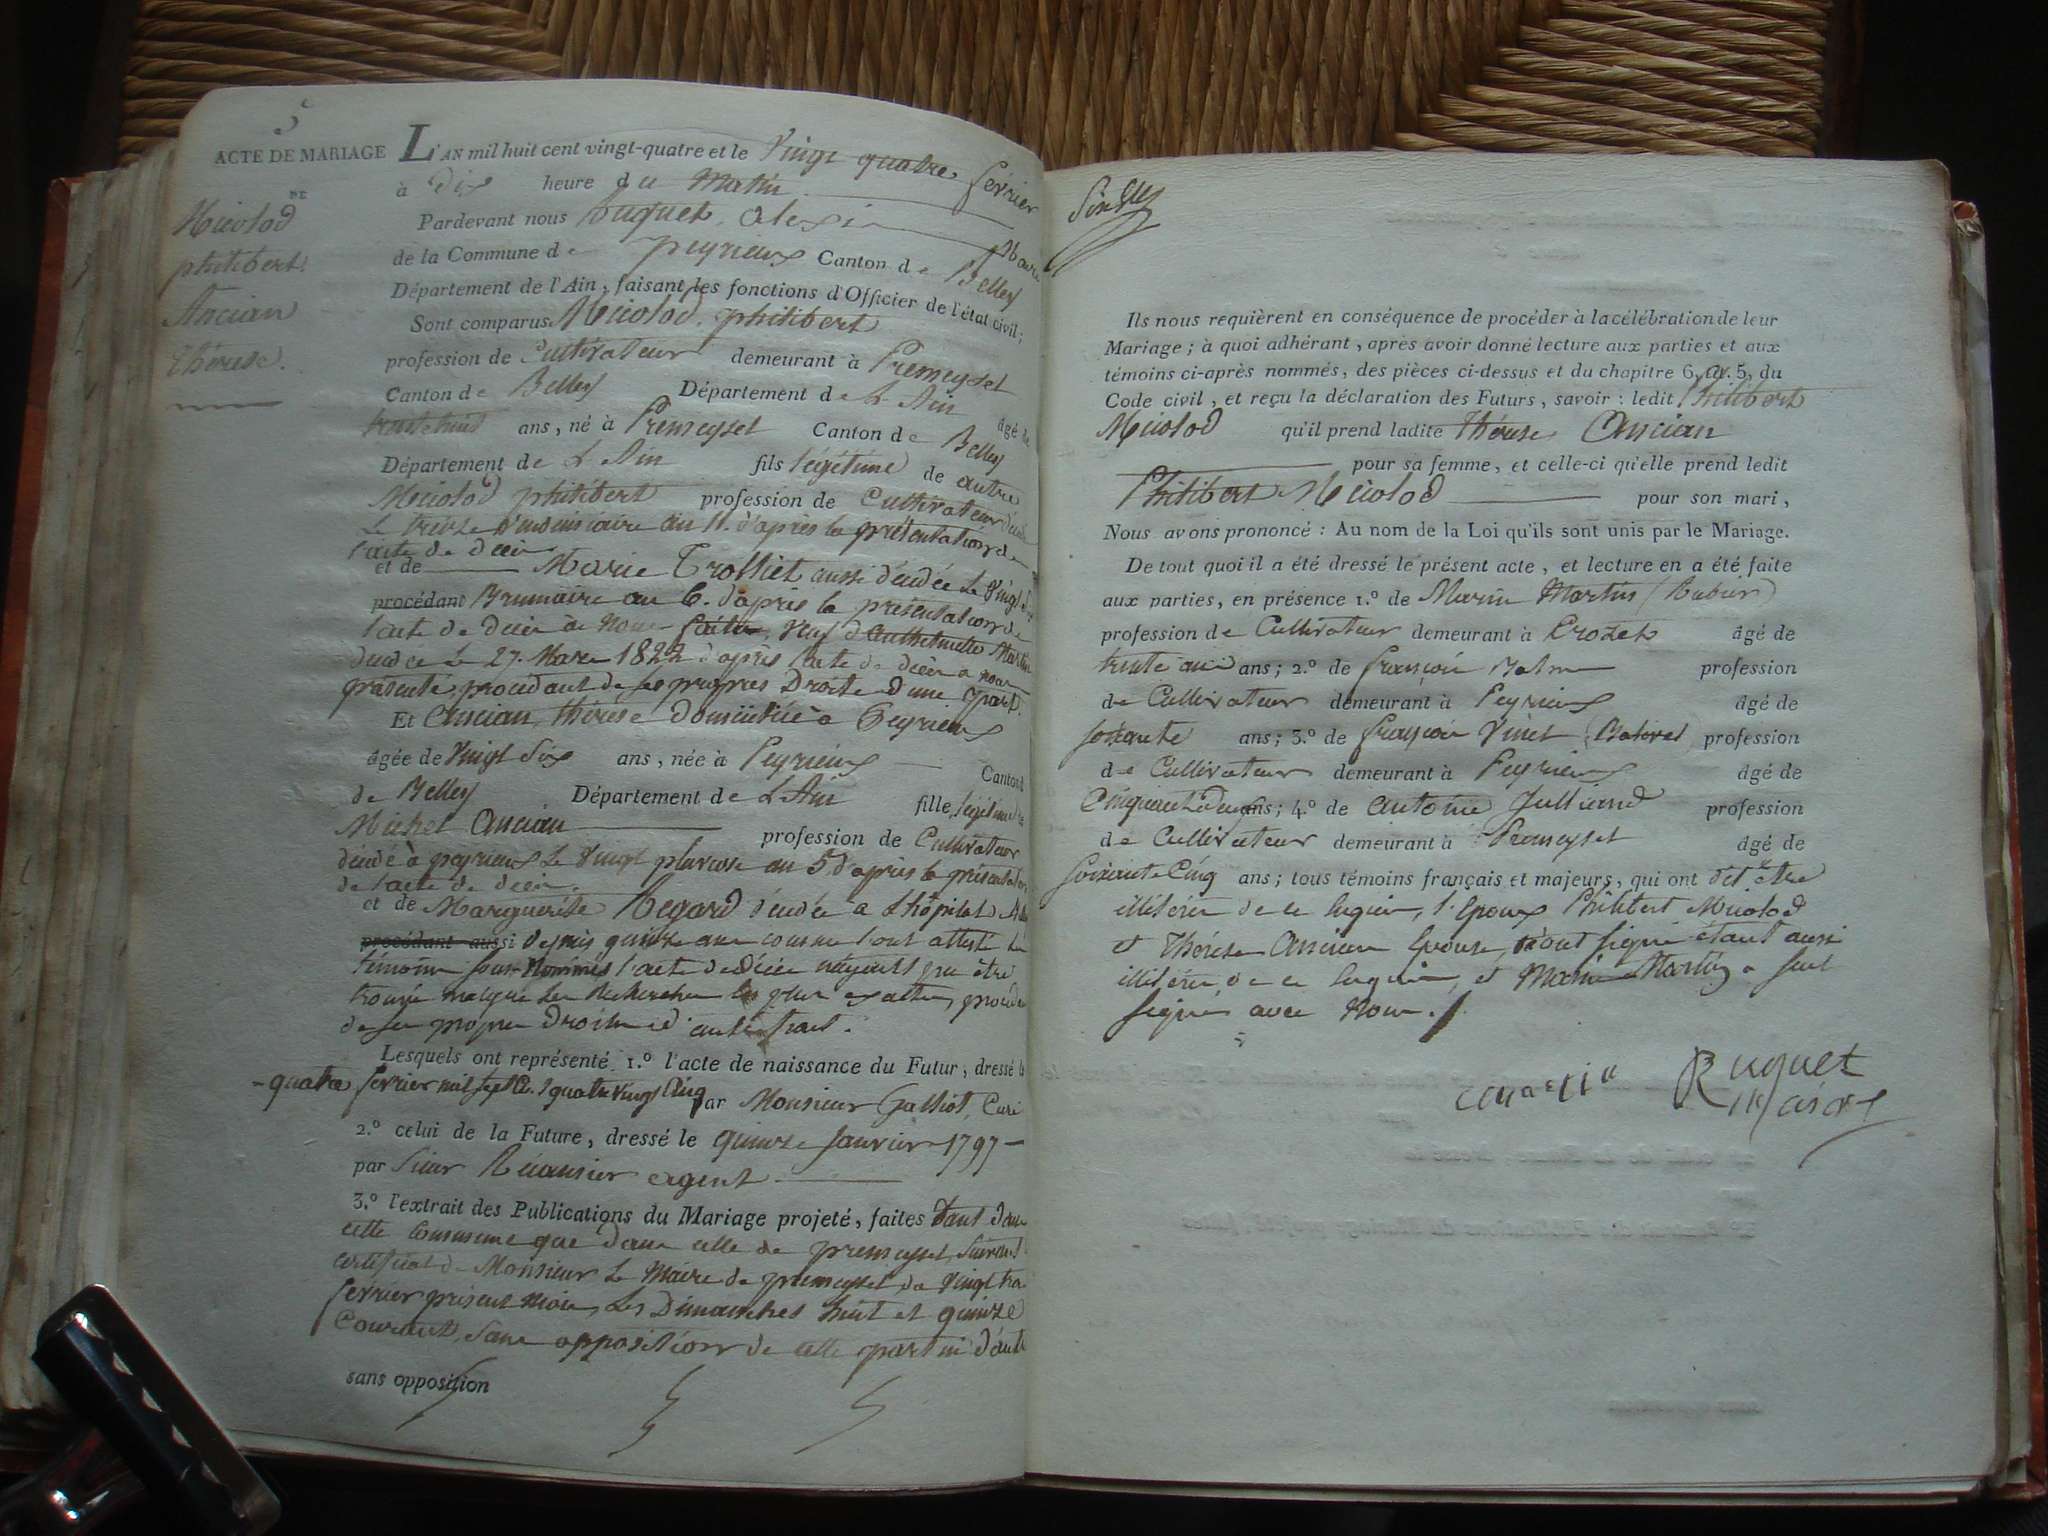 5
ACTE DE MARIAGE
DE
Micolod
philibert
Ancian
Thérèse.
L'AN mil huit cent vingt-quatre et le Vingt quatre février
à dix heure du Matin
Pardevant nous Buguet, alexis Maire
de la Commune de peyrieux Canton de Belley
Département de l'Ain, faisant les fonctions d'Officier de l'état civil;
Sont comparus Micolod, philibert
profession de Cultivateur demeurant à Premeyzel
Canton de Belley Département de L'Ain âgé de
trentehuit ans, né à Premeyzel Canton de Belley
Département de L'Ain fils légitime de autre
Micolod philibert profession de Cultivateur
Le treize an 11. d'après la présentation de
l'acte de décès
et de Marie Trolliet aussi décédée Le Vingt
procédant Brumaire an 6. d'après la présentation de
l'acte de décès à nous Veuf d'Anthelmette Martin
décédée Le 27. Mars 1822 d'après l'acte de décès à nous
présenté, procédant de ses propres Droits d'une part.
Et Ancian, thérèse domiciliée à Peyrieux
âgée de Vingt six ans, née à Peyrieux Canton
de Belley Département de L'Ain fille légitime de
Michel Ancian profession de Cultivateur
décédé à peyrieux Le Vingt pluviose an 5 d'après la présentation
de l'acte de décès.
et de Marguerite Regard décédée à L'hôpital
procédant aussi depuis quinze ans comme l'ont attesté les
témoins sous Nommés l'acte de Décès n'ayant pu être
trouvé malgré les Recherches les plus exactes, procédant
de ses propres Droits d'autre part.
Lesquels ont représenté 1.º l'acte de naissance du Futur, dressé le
quatre février mil sept C. quatre Vingt Cinq par Monsieur Galliot, Curé
2.º celui de la Future, dressé le quinze Janvier 1797
par Sieur agent
3.º l'extrait des Publications du Mariage projeté, faites tant dans
cette Commune que dans celle de premeyzel, suivant
certificat de Monsieur Le Maire de premeyzel du Vingt trois
février présent mois, Les Dimanches huit et quinze
Courant, sans opposition de cette part ni d'autre
sans opposition
Ils nous requièrent en conséquence de procéder à la célébration de leur
Mariage; à quoi adhérant, après avoir donné lecture aux parties et aux
témoins ci-après nommés, des pièces ci-dessus et du chapitre 6, tit. 5, du
Code civil, et reçu la déclaration des Futurs, savoir: ledit Philibert
Micolod qu'il prend ladite Thérèse Ancian
pour sa femme, et celle-ci qu'elle prend ledit
Philibert Micolod pour son mari,
Nous avons prononcé: Au nom de la Loi qu'ils sont unis par le Mariage.
De tout quoi il a été dressé le présent acte, et lecture en a été faite
aux parties, en présence 1.º de Marin Martin
profession de Cultivateur demeurant à Crozet âgé de
trente ans; 2.º de françois profession
de Cultivateur demeurant à Peyrieux âgé de
soixante ans; 3.º de françois Vinet profession
de Cultivateur demeurant à Peyrieux âgé de
Cinquante deux ans; 4.º de antoine Julliand profession
de Cultivateur demeurant à Premeyzel âgé de
Soixante Cinq ans; tous témoins français et majeurs, qui ont dit être
illitérés de ce Enquis, l'Epoux Philibert Micolod
et Thérèse Ancian Epouse, n'ont signé étant aussi
illitérés, de ce Enquis, et Marin Martin a seul
signé avec Nous.
Buguet
Maire